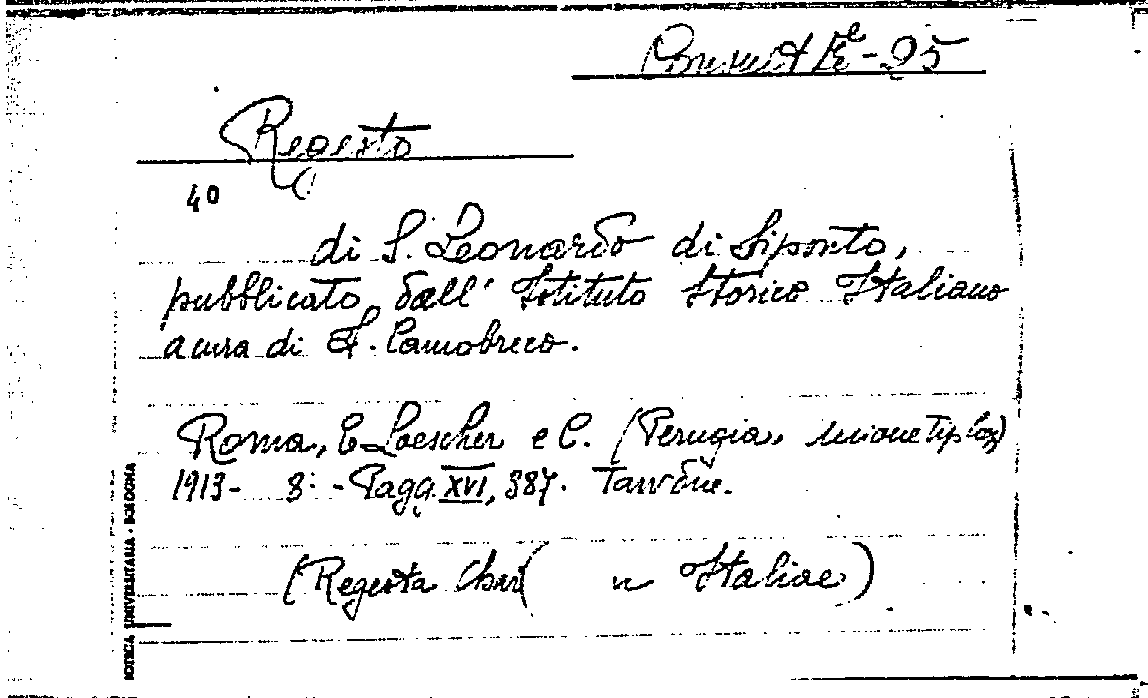 Consult E-25
Regesto
40
di S. Leonardo di Siponto,
pubblicato dall' Istituto Storico Italiano
a cura di F. Camobreco.
Roma, E. Loescher e C. (Perugia, unione tip coop)
1913 - 8: - Pagg. XVI, 387. Tavv due.
(Regesta Char( n Italiae)
IOTECA UNIVERSITARIA - BOLOGNA